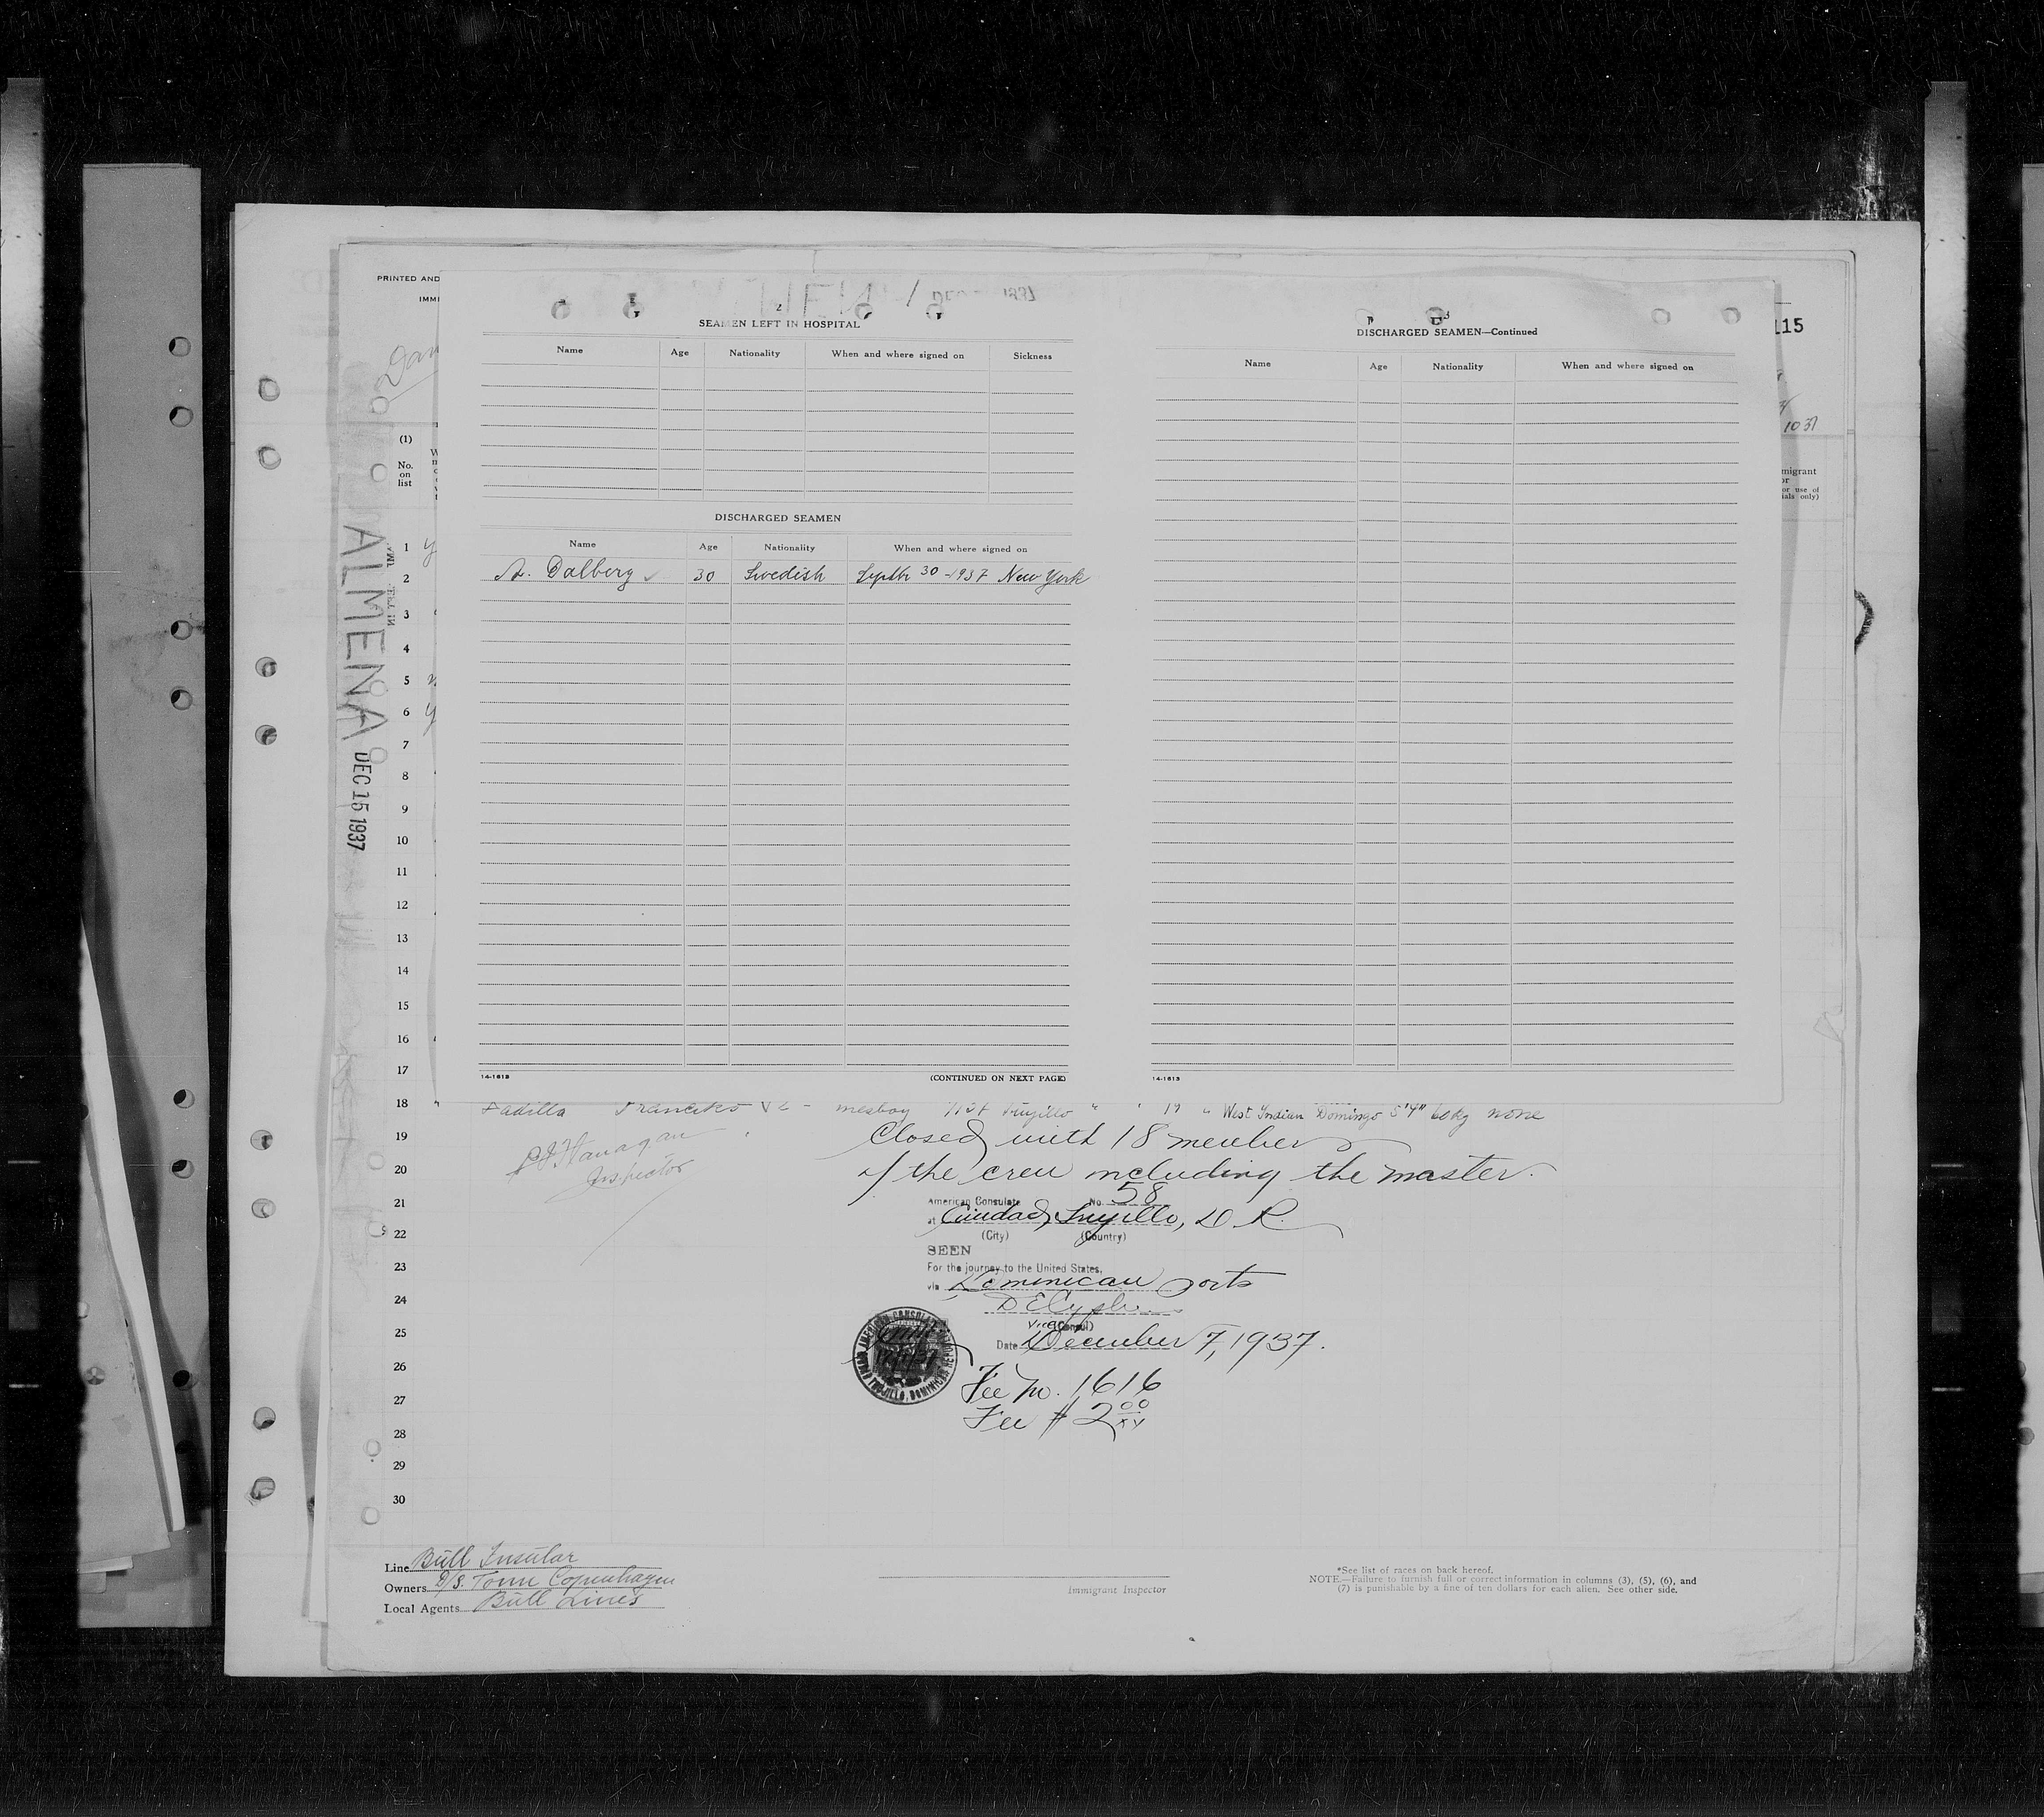 PRINTED AND
IMMI
DEC 1937
2
SEAMEN LEFT IN HOSPITAL
Name Age Nationality When and where signed on Sickness
DISCHARGED SEAMEN
Name Age Nationality When and where signed on
A. Dalberg 30 Swedish Septbr 30 - 1937 New York
14-1613
(CONTINUED ON NEXT PAGE)
3
DISCHARGED SEAMEN—Continued
Name Age Nationality When and where signed on
14-1613
115
migrant
or
or use of
ials only)
(1)
No.
on
list
ALMENA
DEC 15 1937
1
2
3
4
5
6
7
8
9
10
11
12
13
14
15
16
17
18 Padilla Francisko mesboy Trujillo " 19 " West Indian Domingo 5'4" 60kg none
19 Closed with 18 members
20 of the crew including the master.
Inspector
21 American Consulate No. 58
at Ciudad Trujillo, D. R.
22 (City) (Country)
SEEN
23 For the journey to the United States,
via Dominican ports
24
Vice (Consul)
25 Date December 7, 1937.
26 Fee No. 1616
27 Fee # 2 00/xx
28
29
30
Line Bull Insular
Owners D/S. Torm Copenhagen
Local Agents Bull Lines
Immigrant Inspector
*See list of races on back hereof.
NOTE.—Failure to furnish full or correct information in columns (3), (5), (6), and
(7) is punishable by a fine of ten dollars for each alien. See other side.